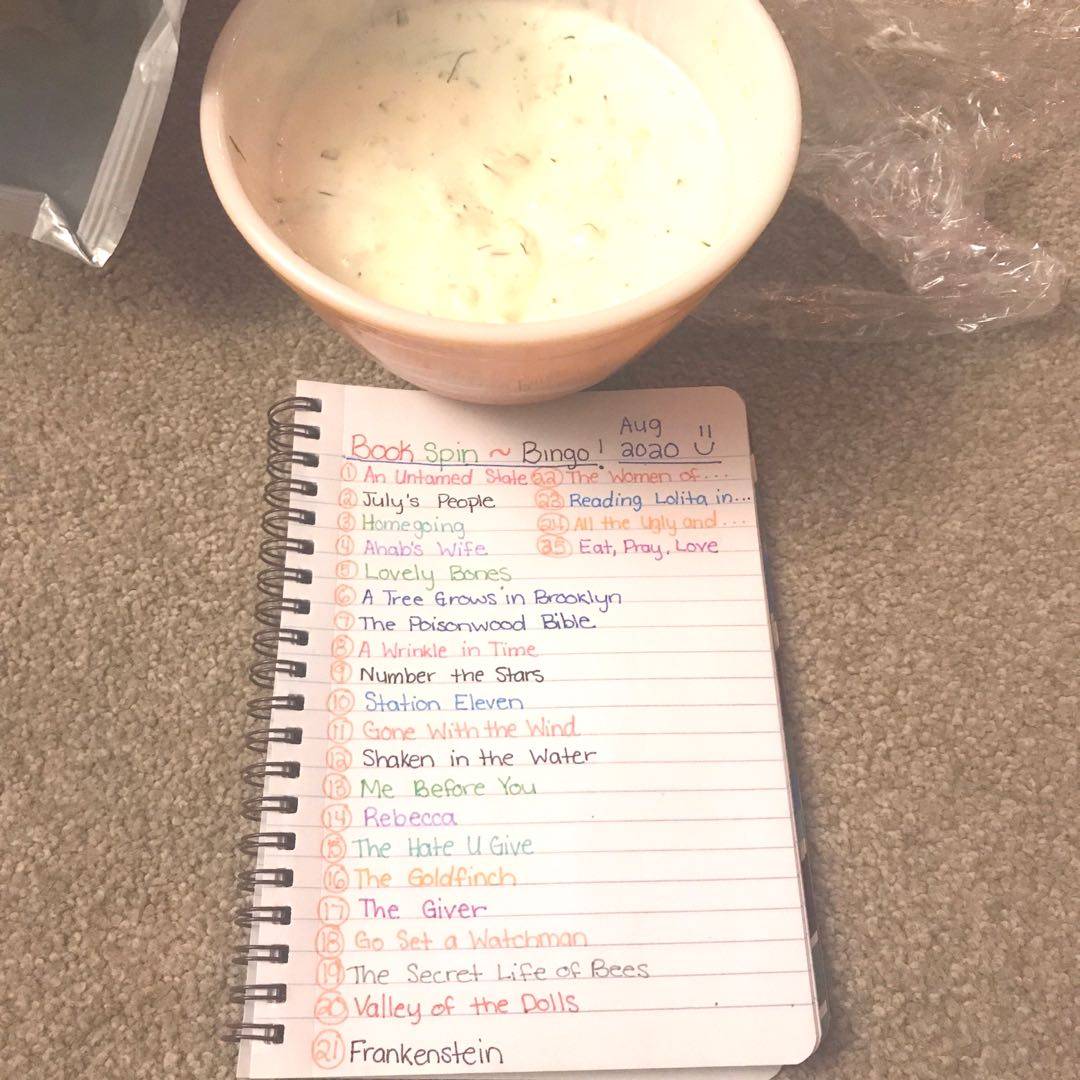 Book Spin ~ Bingo! Aug 2020
① An Untamed State
② July's People
③ Homegoing
④ Ahab's Wife
⑤ Lovely Bones
⑥ A Tree Grows in Brooklyn
⑦ The Poisonwood Bible
⑧ A Wrinkle in Time
⑨ Number the Stars
⑩ Station Eleven
⑪ Gone With the Wind
⑫ Shaken in the Water
⑬ Me Before You
⑭ Rebecca
⑮ The Hate U Give
⑯ The Goldfinch
⑰ The Giver
⑱ Go Set a Watchman
⑲ The Secret Life of Bees
⑳ Valley of the Dolls
㉑ Frankenstein
㉒ The Women of...
㉓ Reading Lolita in...
㉔ All the Ugly and...
㉕ Eat, Pray, Love